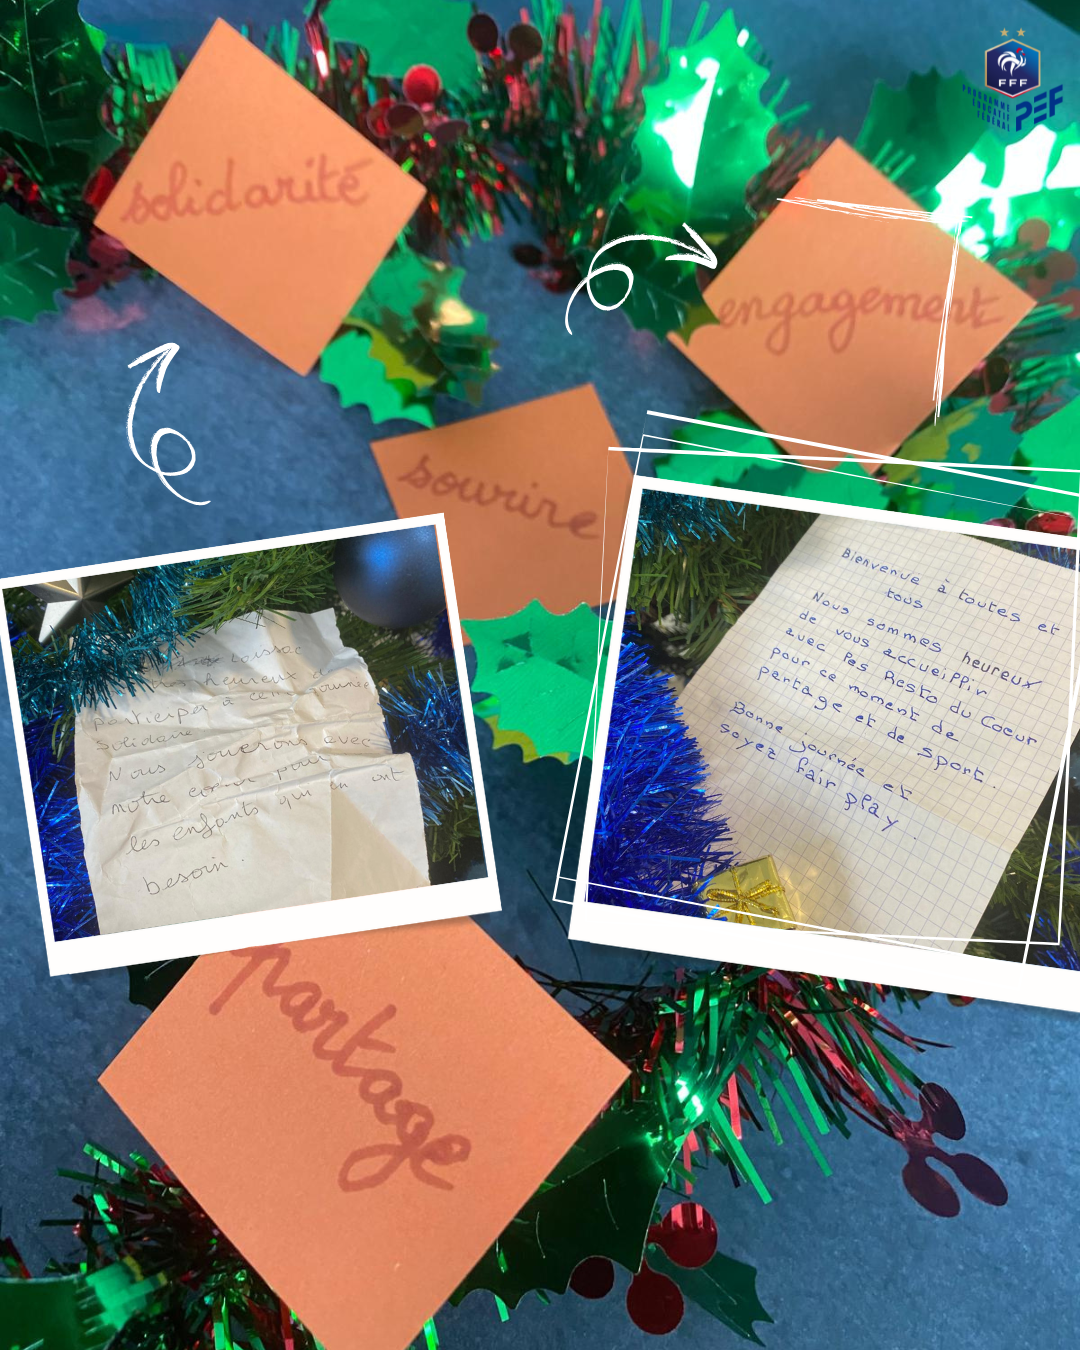 FFF
PROGRAMME
EDUCATIF
FÉDÉRAL
PEF
solidarité
engagement
sourire
Loissac
heureux
participer à cette journée
Solidaire
Nous jouerons avec
notre pour
les enfants qui en ont
besoin.
Bienvenue à toutes et
tous
Nous sommes heureux
de vous accueillir
avec les Resto du Coeur
pour ce moment de
partage et de sport.
Bonne journée et
soyez fair play.
partage